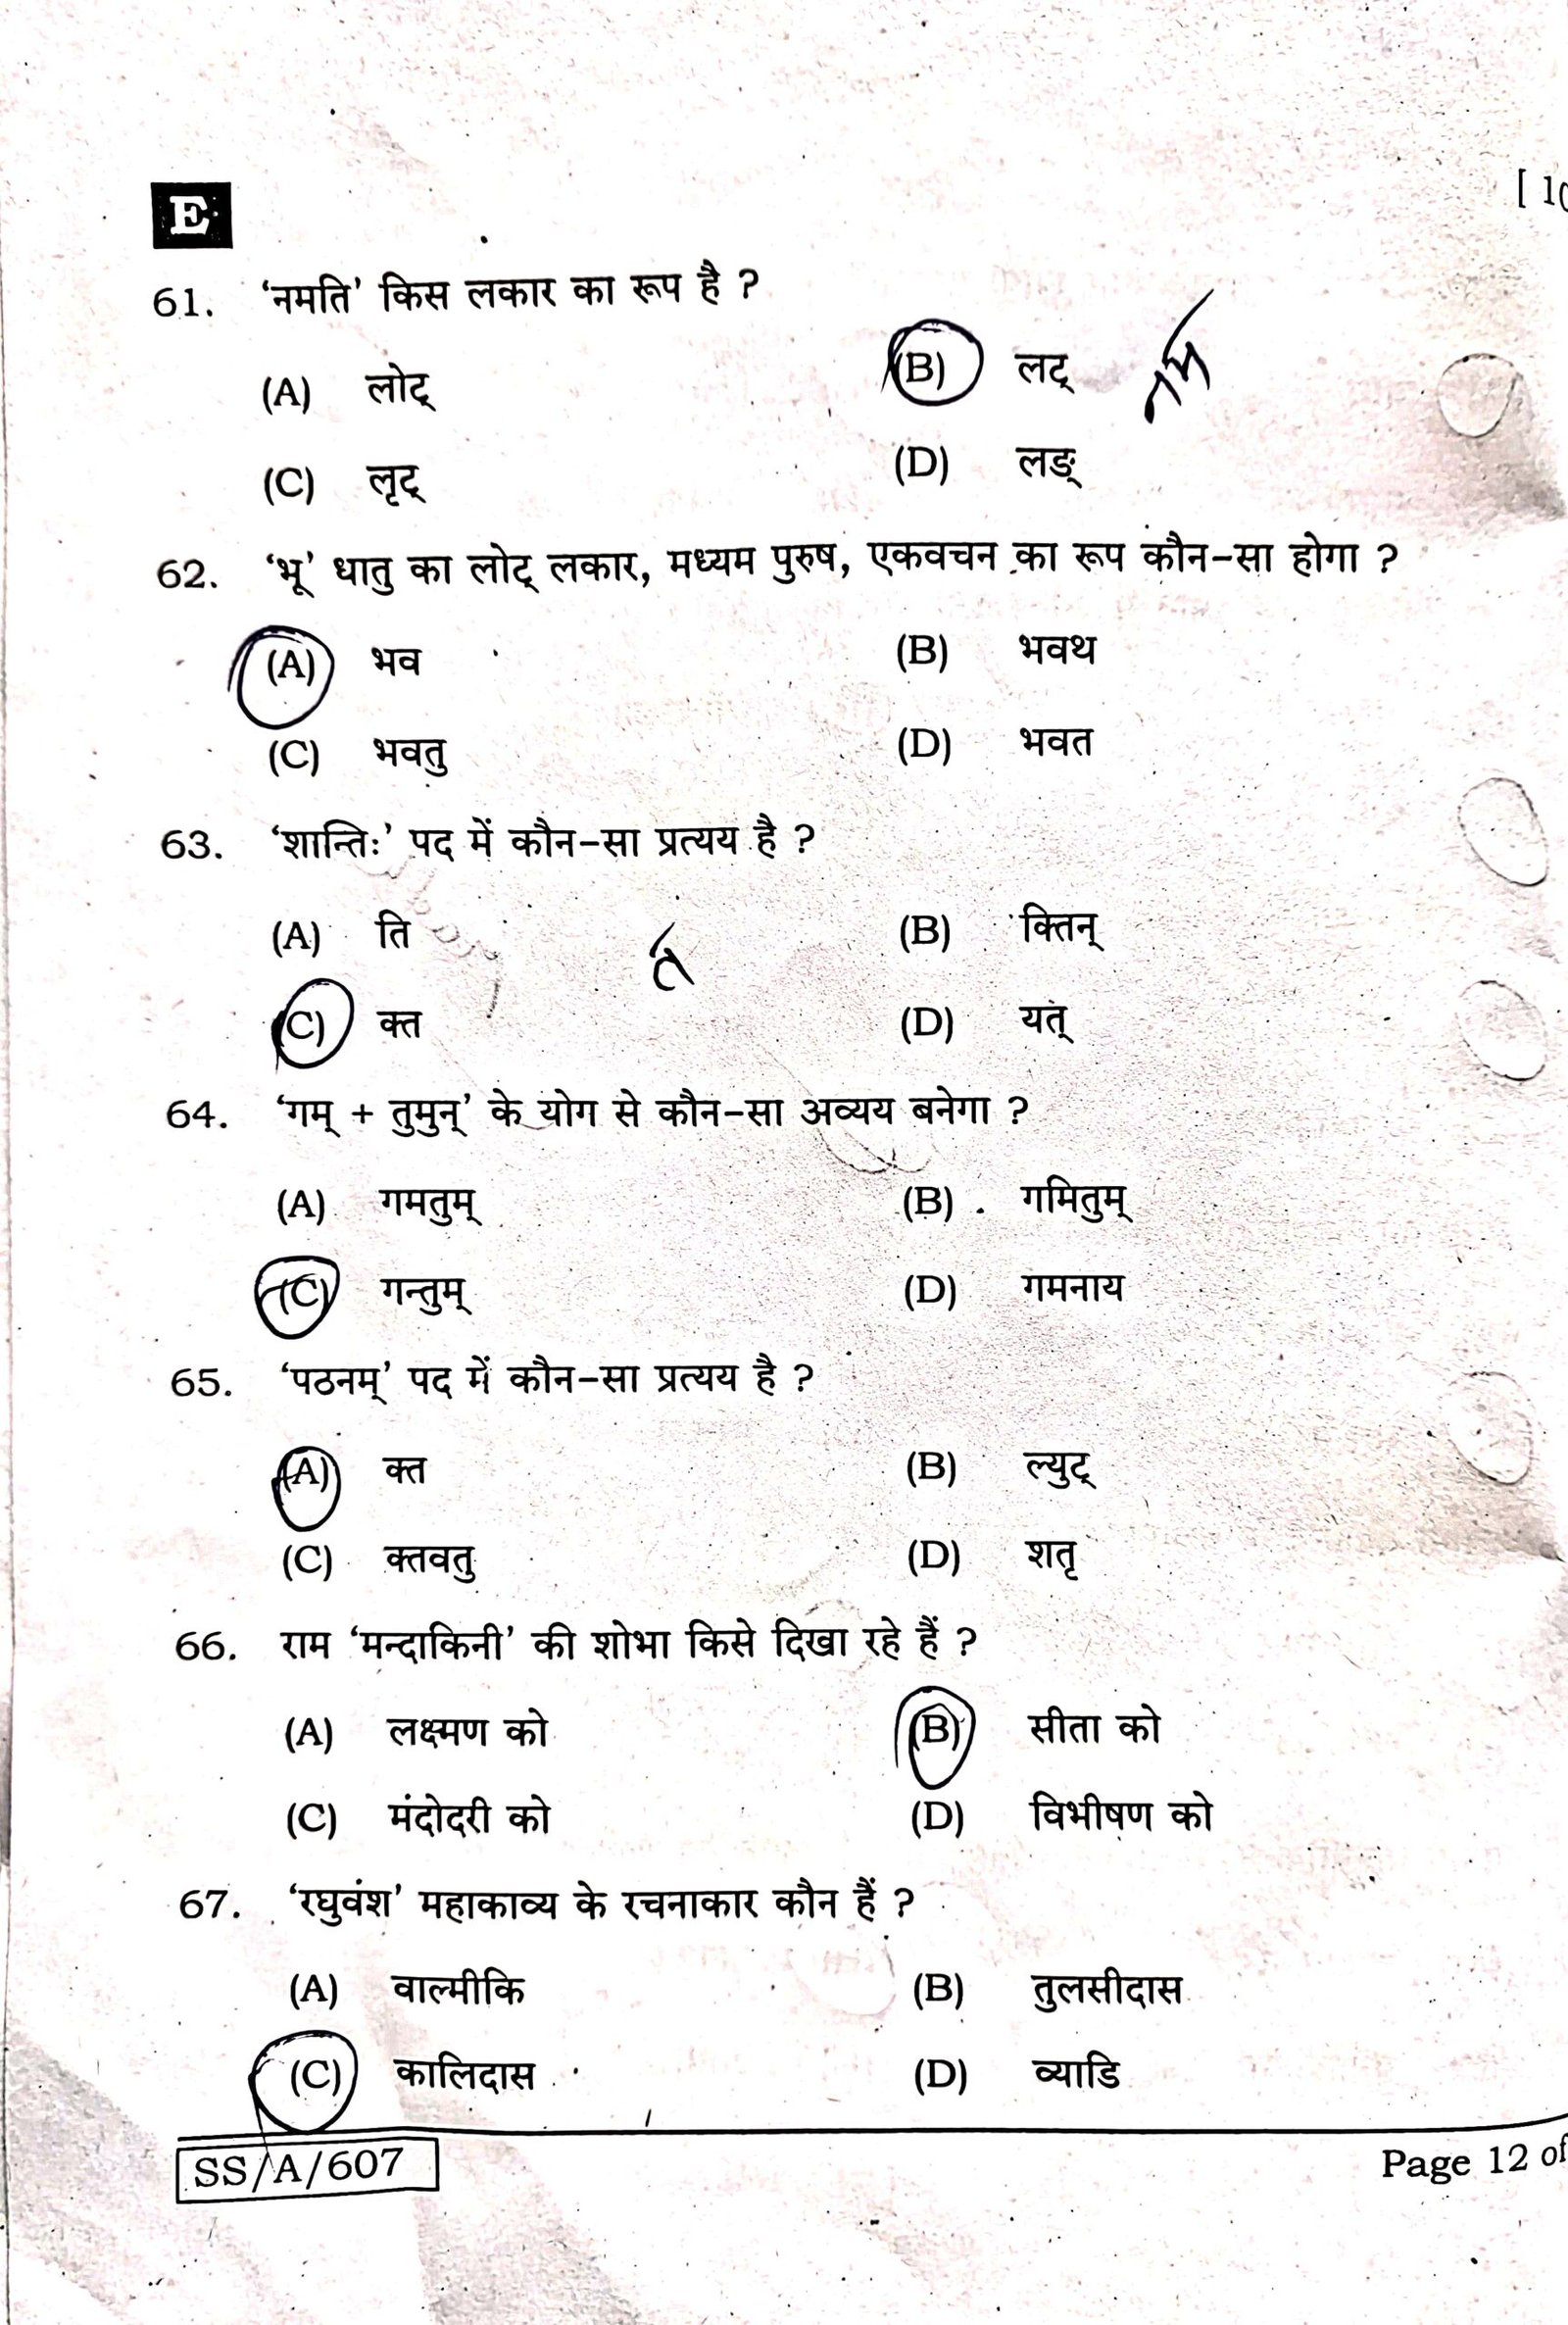 E
[ 10
61. 'नमति' किस लकार का रूप है ?
(A) लोट् (B) लट्
(C) लृट् (D) लङ्
62. 'भू' धातु का लोट् लकार, मध्यम पुरुष, एकवचन का रूप कौन-सा होगा ?
(A) भव (B) भवथ
(C) भवतु (D) भवत
63. 'शान्तिः' पद में कौन-सा प्रत्यय है ?
(A) ति (B) क्तिन्
(C) क्त (D) यत्
64. 'गम् + तुमुन्' के योग से कौन-सा अव्यय बनेगा ?
(A) गमतुम् (B) गमितुम्
(C) गन्तुम् (D) गमनाय
65. 'पठनम्' पद में कौन-सा प्रत्यय है ?
(A) क्त (B) ल्युट्
(C) क्तवतु (D) शतृ
66. राम 'मन्दाकिनी' की शोभा किसे दिखा रहे हैं ?
(A) लक्ष्मण को (B) सीता को
(C) मंदोदरी को (D) विभीषण को
67. 'रघुवंश' महाकाव्य के रचनाकार कौन हैं ?
(A) वाल्मीकि (B) तुलसीदास
(C) कालिदास (D) व्याडि
SS/A/607
Page 12 of